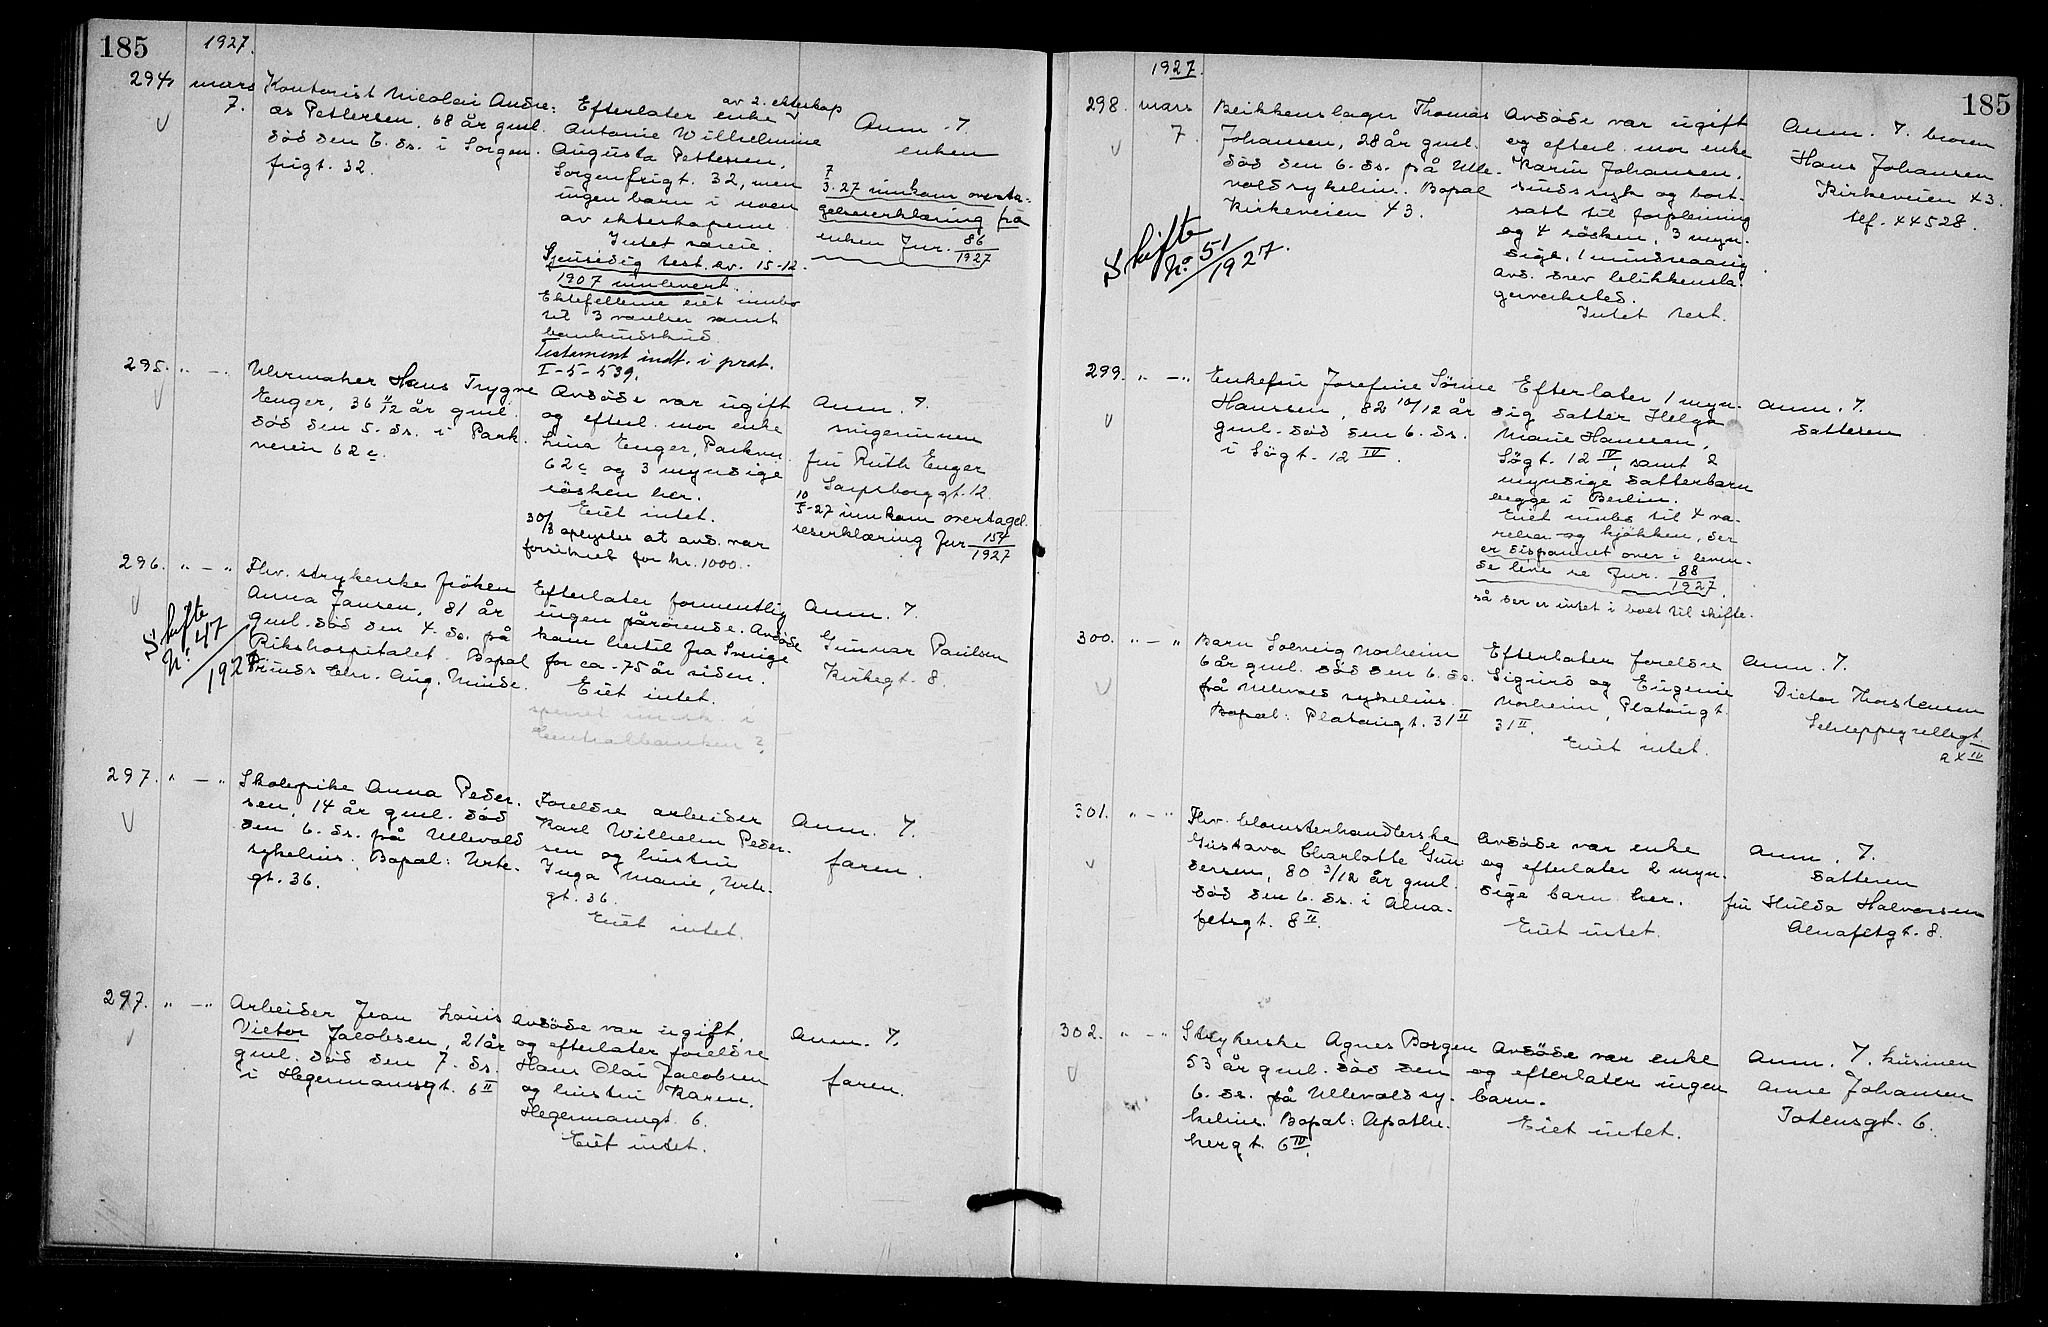 185
1927.
294. mars 7.
Kontorist Nicolai Andre-
as Pettersen, 68 år gml.
död den 6. ds. i Sorgen-
frigt. 32.
av 2. ekteskap
Efterlater enke
Antonie Wilhelmine
Augusta Pettersen,
Sorgenfrigt. 32, men
ingen barn i noen
av ekteskapene.
Intet særeie.
Gjensidig test. av 15-12-
1907 innlevert.
Ektefellene eiet innbo
til 3 værelser samt
bankinnskud.
Testament indt. i prot.
I-5-539.
Anm. 7.
enken
7/3-27 innkom overta-
gelseserklæring fra
enken Jnr. 86/1927
295. " — "
Urmaker Hans Trygve
Enger, 36 11/12 år gml.
död den 5. ds. i Park-
veien 62 c.
Avdöde var ugift
og efterl. mor enke
Lina Enger, Parkvn.
62 c og 3 myndige
sösken her.
Eiet intet.
30/3 oplystes at avd. var
forsikret for kr. 1000.-
Anm. 7.
svigerinnen
fru Ruth Enger
Sarpsborggt. 12.
10/5-27 innkom overtagel-
seserklæring Jnr 154/1927
296. " — "
Skifte
Nº 47/1927
Fhv. strykerske fröken
Anna Jansen, 81 år
gml. död den 4. ds. på
Rikshospitalet. Bopæl
Prinds Chr. Aug. Minde.
Efterlater formentlig
ingen pårörende. Avdöde
kom hertil fra Sverige
for ca. 75 år siden.
Eiet intet.
Centralbanken?
Anm. 7.
Gunnar Paulsen
Kirkegt. 8.
297. " — "
Skolepike Anna Peder-
sen, 14 år gml. död
den 6. ds. på Ullevold
sykehus. Bopæl: Urte-
gt. 36.
Foreldre arbeider
Karl Wilhelm Peder-
sen og hustru
Inga Marie, Urte-
gt. 36.
Eiet intet.
Anm. 7.
faren.
297. " — "
Arbeider Jean Louis
Victor Jacobsen, 21 år
gml. död den 7. ds.
i Hegermannsgt. 6 II
Avdöde var ugift
og efterlater foreldre
Hans Olai Jacobsen
og hustru Karen.
Hegermannsgt. 6.
Eiet intet.
Anm. 7.
faren.
185
1927.
298. mars 7.
Skifte
Nº 51/1927.
Blikkenslager Thomas
Johansen, 28 år gml.
död den 6. ds. på Ulle-
vold sykehus. Bopæl
Kirkeveien 43.
Avdöde var ugift
og efterl. mor enke
Karin Johansen,
sindssyk og bort-
satt til forpleining
og 4 sösken, 3 myn-
dige, 1 mindreaarig.
Avd. drev blikkensla-
gerverksted.
Intet test.
Anm. 7. broren
Hans Johansen
Kirkeveien 43.
tlf. 44528.
299. " — "
Enkefru Josefine Sörine
Hanssen, 82 10/12 år
gml. död den 6. ds.
i Sögt. 12 IV.
Efterlater 1 myn-
dig datter Helga
Marie Hanssen,
Sögt. 12 IV, samt 2
myndige datterbarn
begge i Berlin.
Eiet innbo til 4 væ-
relser og kjökken, der
er disponert over i leven-
de live se Jnr. 88/1927.
så der er intet i boet til skifte.
Anm. 7.
datteren
300. " — "
Barn Solveig Norheim
6 år gml. död den 6. ds.
på Ullevold sykehus.
Bopæl: Platougt. 31 II
Efterlater foreldre
Sigurd og Eugenie
Norheim, Platougt.
31 II.
Eiet intet.
Anm. 7.
Victor Thorstensen
Schleppegrellsgt.
301. " — "
Fhv. blomsterhandlerske
Gustava Charlotte Gun-
dersen, 80 3/12 år gml.
död den 6. ds. i Alna-
fetgt. 8 II.
Avdöde var enke
og efterlater 2 myn-
dige barn her.
Eiet intet.
Anm. 7.
datteren
fru Hulda Halvorsen
Alnafetgt. 8.
302. " — "
Strykerske Agnes Borgen
53 år gml. död den
6. ds. på Ullevold sy-
kehus. Bopæl: Apothe-
kergt. 6 IV.
Avdöde var enke
og efterlater ingen
barn.
Eiet intet.
Anm. 7. kusinen
Anne Johansen
Totensgt. 6.